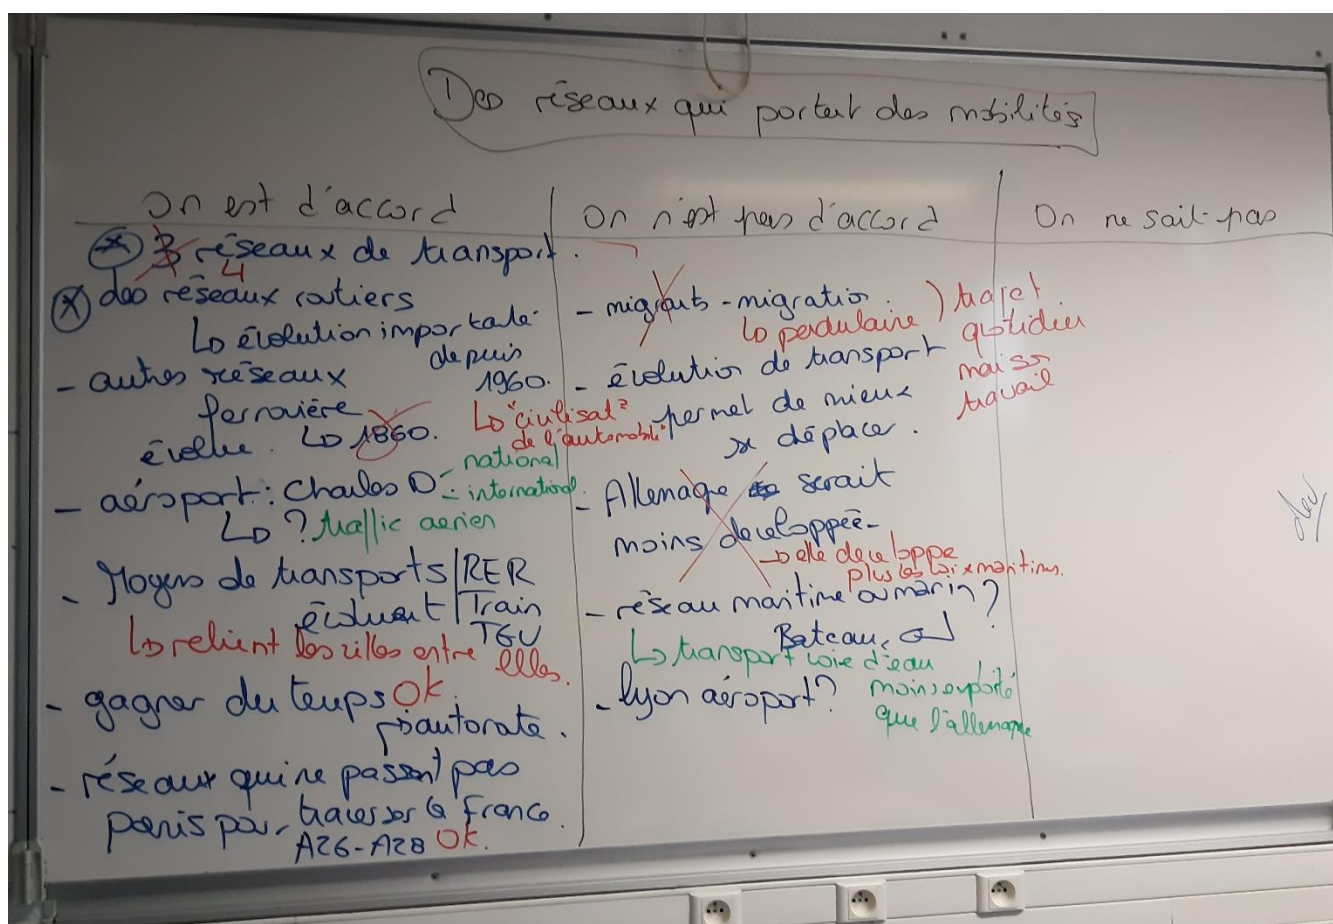 Des réseaux qui portent des mobilités
On est d'accord
3 réseaux de transport.
4
des réseaux routiers
↳ évolution importante
depuis
1960.
↳ "civilisat°
de l'automobile"
- autres réseaux
ferrovière
évolue. ↳ 1860.
- aéroport : Charles D - national
- international
↳ ? traffic aerien
- Moyens de transports RER
évoluent Train
TGV
↳ relient les villes entre elles.
- gagner du temps Ok.
↳ autoroute.
- réseaux qui ne passent pas
paris pour traverser la France.
A26-A28 Ok.
On n'est pas d'accord
- migrants - migration.
↳ pendulaire ) trajet
quotidien
maison
travail
- évolution de transport
permet de mieux
se déplacer.
- Allemagne serait
moins developpée
→ elle developpe
plus les voix maritimes.
- réseau maritime ou marin ?
Bateau,
↳ transport voie d'eau
moins exporté
que l'allemagne
- lyon aéroport ?
On ne sait pas